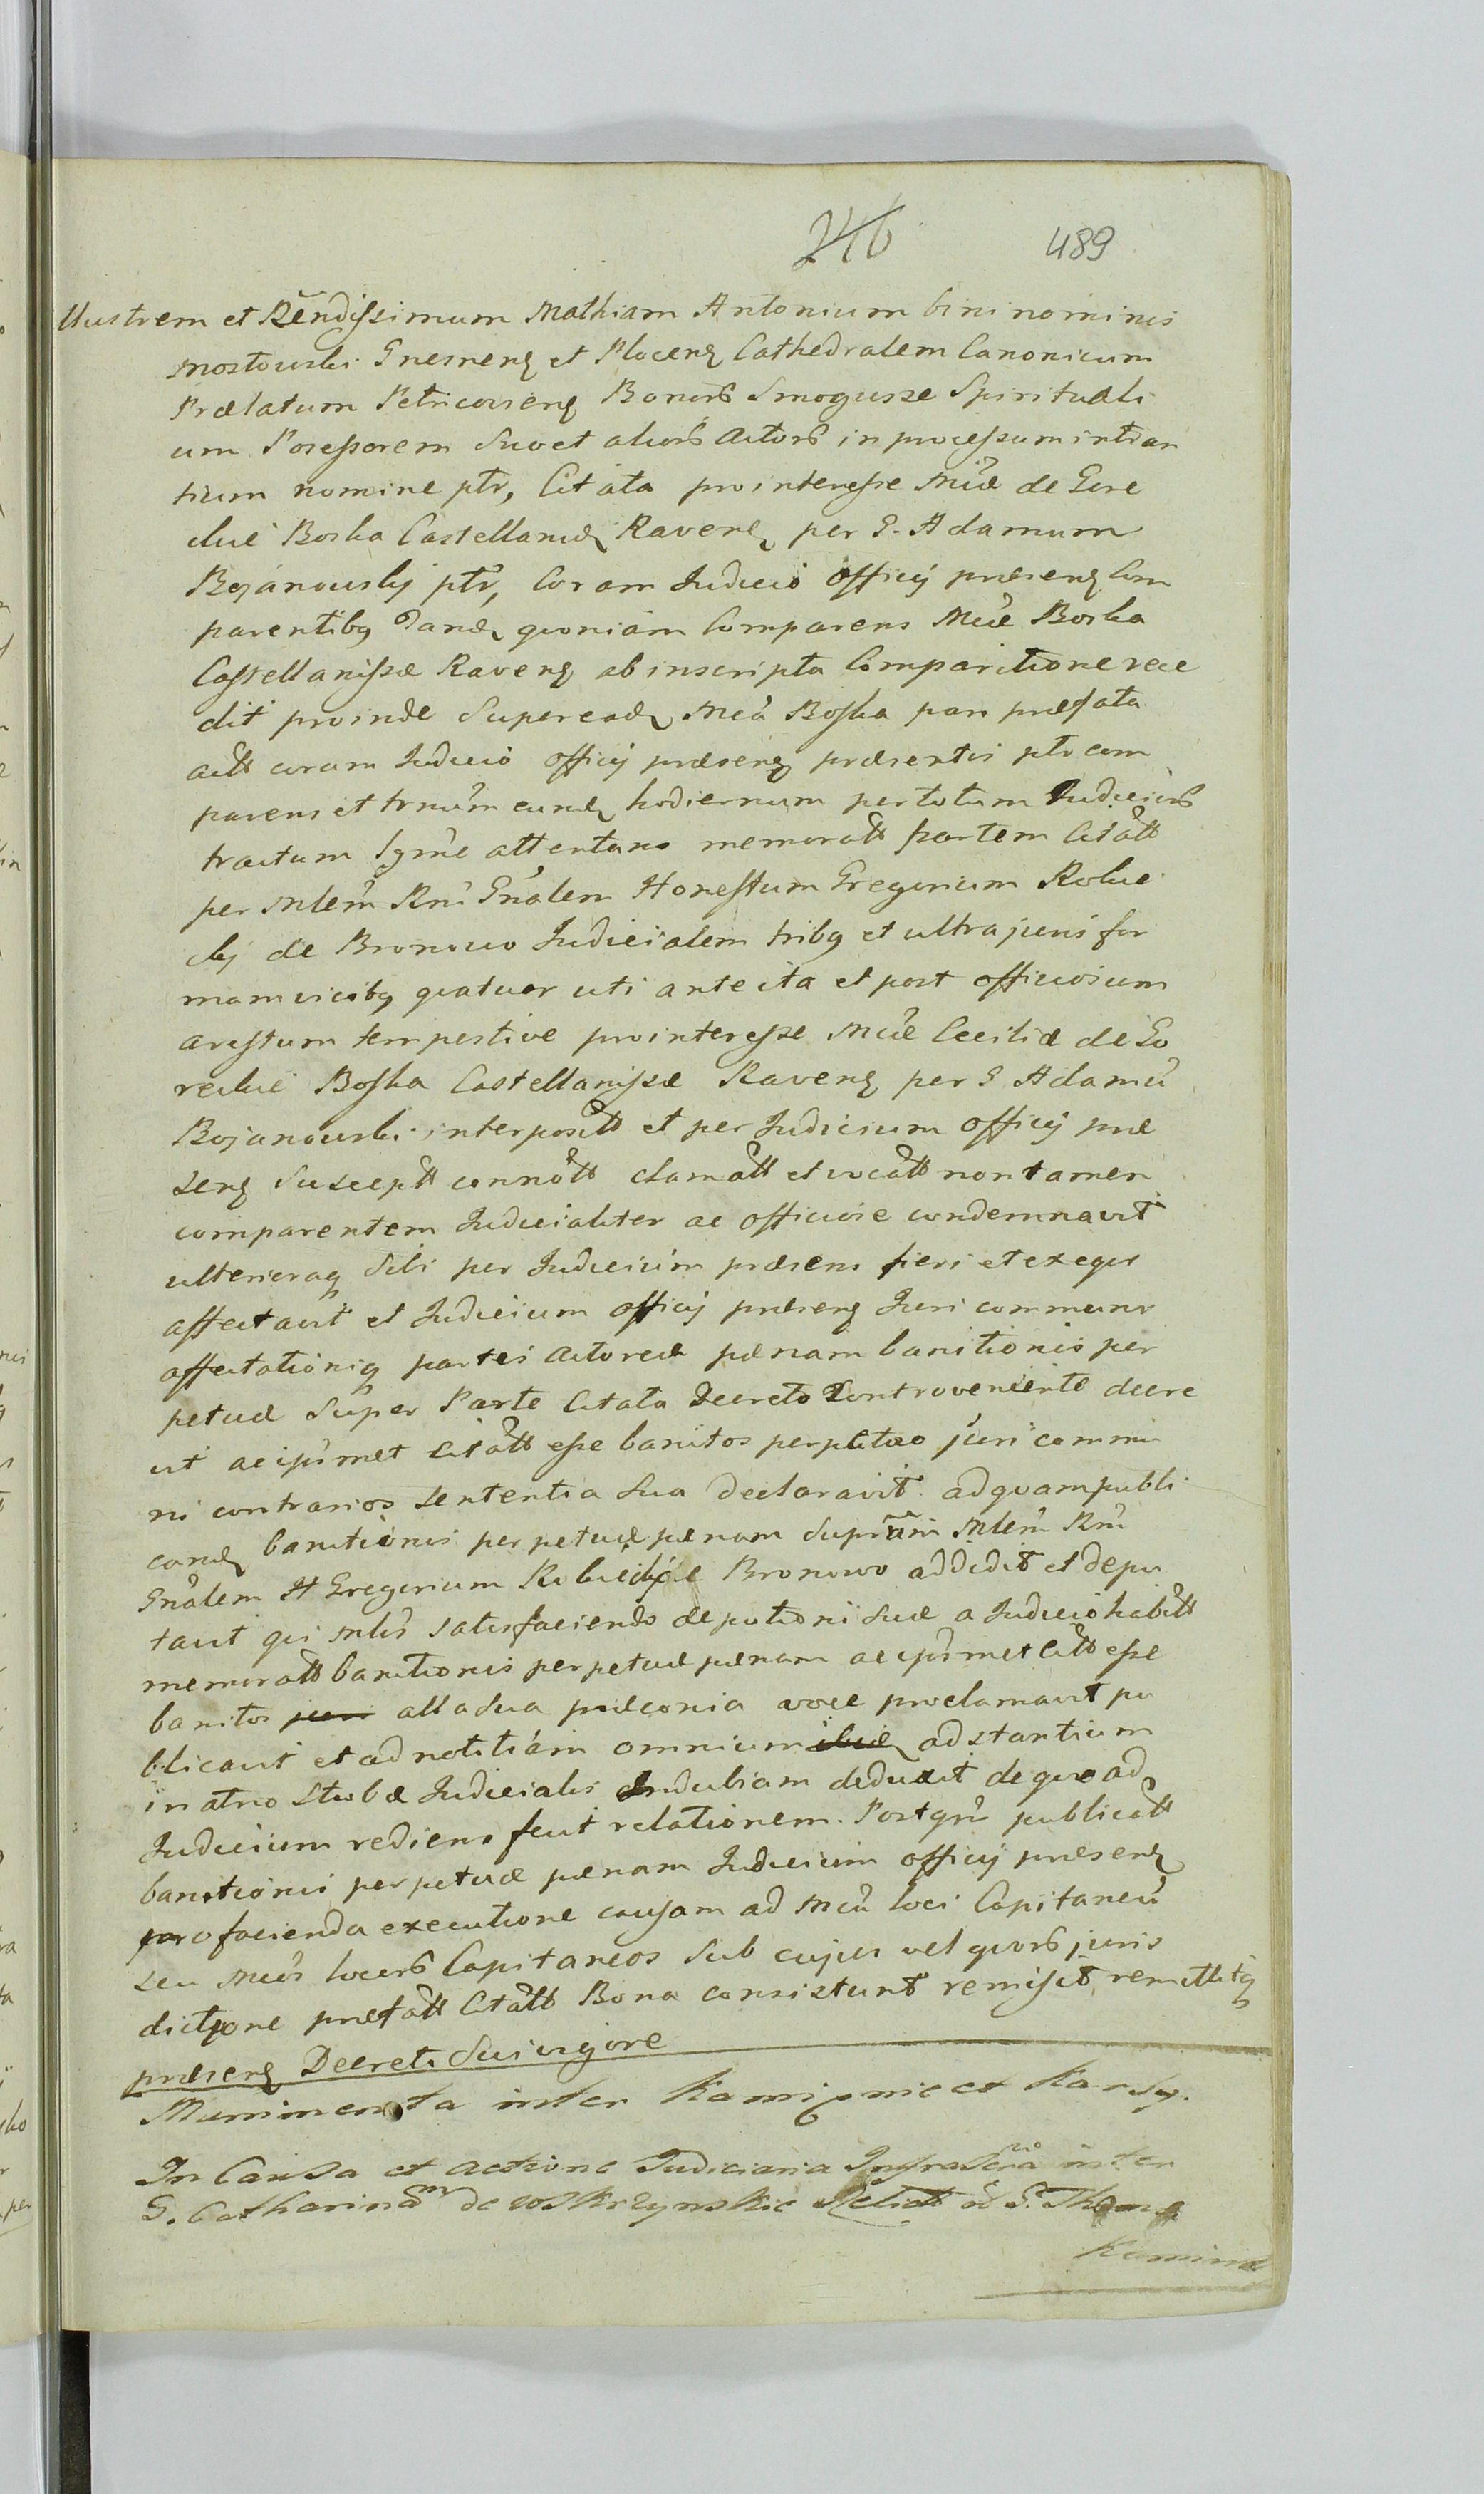 246 489
llustrem et Rendissimum Mathiam Antonium bini nominis
Mostowski Gnesnen et Plocen Cathedralem Canonicum
Prælatum Petricovien Bonorb Smogusze Spirituali
um Possessorem Suo et aliorb Actorb in processum intran
tium nomine ptr, Citata pro interesse Mcæ de Gore
ckie Boska Castellanidæ Raven per G. Adamum
Bojanowskij ptr, Coram Judicio Officij præsen Com
parentibq Tand quoniam Comparens Mcæ Boska
Castellanissæ Raven ab inscripta Comparitione rece
dit proinde Super ead Mca Boska pars præfata
actt coram Judicio officij præsen præsentis ptr com
parens et trnum eund hodiernum per totum Judiciorb
tractum lgme attentans memoratt partem Citatt
per Mlem Rni Gnalem Honestum Gregorium Rolue
ckij de Bronowo Judicialem tribq et ultra juris for
mam vicibq quatuor uti ante ita et post officiosum
arestum tempestive pro interesse Mcæ Cecilia de Go
reckie Boska Castellanissæ Raven per G Adamu
Bojanowski interpositt et per Judicium officij præ
sen Susceptt connott clamatt et vocatt non tamen
comparentem Judicialiter ac officiose condemnavit
ulterioraq Sibi per Judicium præsens fieri et exequi
affectavit et Judicium officij præsen Juri communi
affectationiq partis Actoreæ pænam banitionis per
petuæ Super Parte Citata Decreto Controveniente decre
vit ac ipsmet Citatt esse banitos perpetuo juri commu
ni contrarios Sententia Sua declaravit. ad quam publi
cand banitionis perpetuæ pænam Supram Mlem Rni
Gnalem H Gregorium de Bronowo addidit et depu
tavit qui Mlis satisfaciendo deputioni Suæ a Judicio habitt
memoratt banitionis perpetuæ pænam ac ipsmet Citt esse
banitos alta Sua præconia voce proclamavit pu
blicavit et ad notitiam omnium adstantium
in atrio Stubæ Judicialis Indubiam deduxit de quo ad
Judicium rediens fecit relationem. Postqm publicatt
banitionis perpetuæ pænam Judicium officij præsen
pro facienda executione causam ad Mcu loci Capitaneu
seu Mcos locorb Capitaneos Sub cujus vel quorb juris
dictione præfatt Citatt Bona consistunt remisit, remittitq
præsen Decreti Sui vigore
Munimenta inter et Karsy.
In Causa et actione Judiciaria Infrascra inter
G. Catharinam de Woskrzynskie Relict ol G. Thoma
Kamina